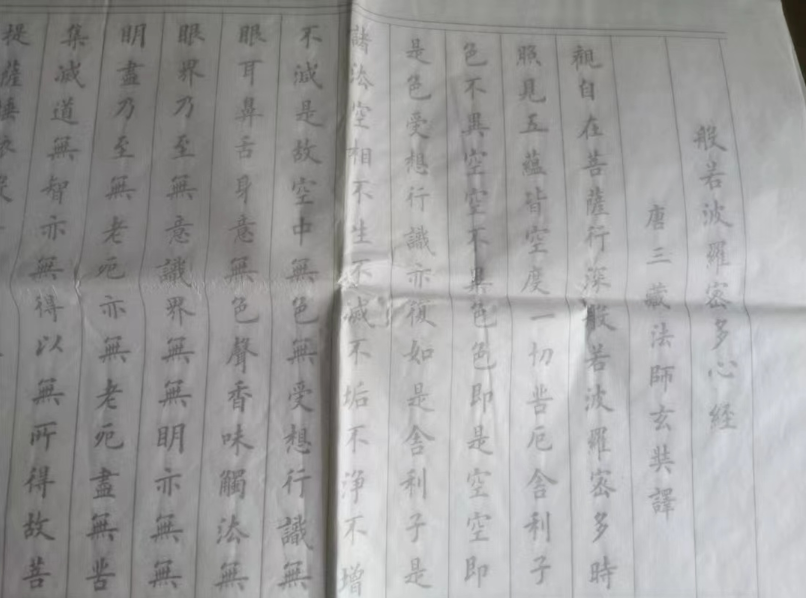 般若波羅密多心經
唐三藏法師玄奘譯
觀自在菩薩行深般若波羅密多時
照見五蘊皆空度一切苦厄舍利子
色不異空空不異色色即是空空即
是色受想行識亦復如是舍利子是
諸法空相不生不滅不垢不淨不增
不減是故空中無色無受想行識無
眼耳鼻舌身意無色聲香味觸法無
眼界乃至無意識界無無明亦無無
明盡乃至無老死亦無老死盡無苦
集滅道無智亦無得以無所得故菩
提薩埵